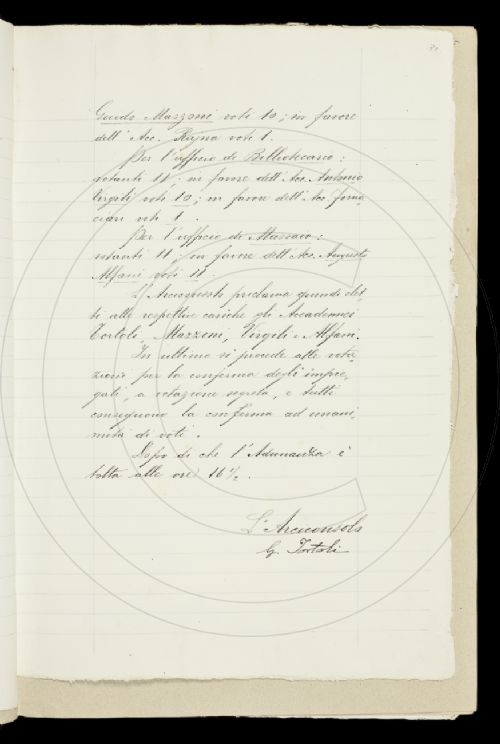 Guido Mazzoni voti 10; in favore
dell'Acc. Rajna voti 1.
Per l'ufficio di Bibliotecario:
votanti 11; in favore dell'Acc. Antonio
Virgili voti 10; in favore dell'Acc. Forna
ciari voti 1.
Per l'ufficio di Massaio:
votanti 11; in favore dell'Acc. Augusto
Alfani voti 11.
L'Arciconsolo proclama quindi elet-
ti alle respettive cariche gli Accademici
Tortoli, Mazzoni, Virgili e Alfani.
In ultimo si procede alla vota-
zione per la conferma degli impie-
gati, a votazione segreta, e tutti
conseguono la conferma ad unani-
mità di voti.
Dopo di che l'Adunanza è
tolta alle ore 16 ½.
L'Arciconsolo
G. Tortoli